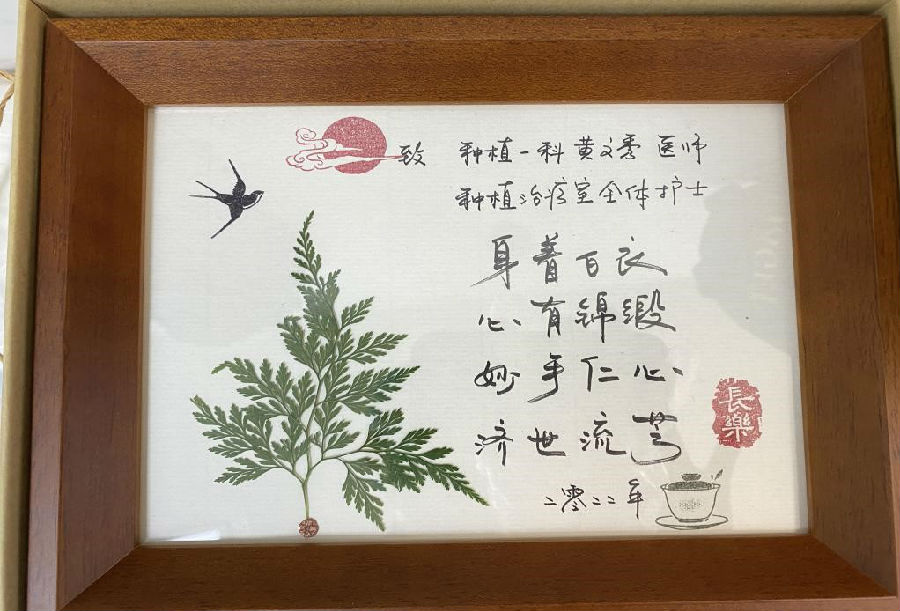 致 种植一科 黄文秀 医师
种植治疗室全体护士
身着百衣
心有锦缎
妙手仁心
济世流芳
二零二二年
長樂